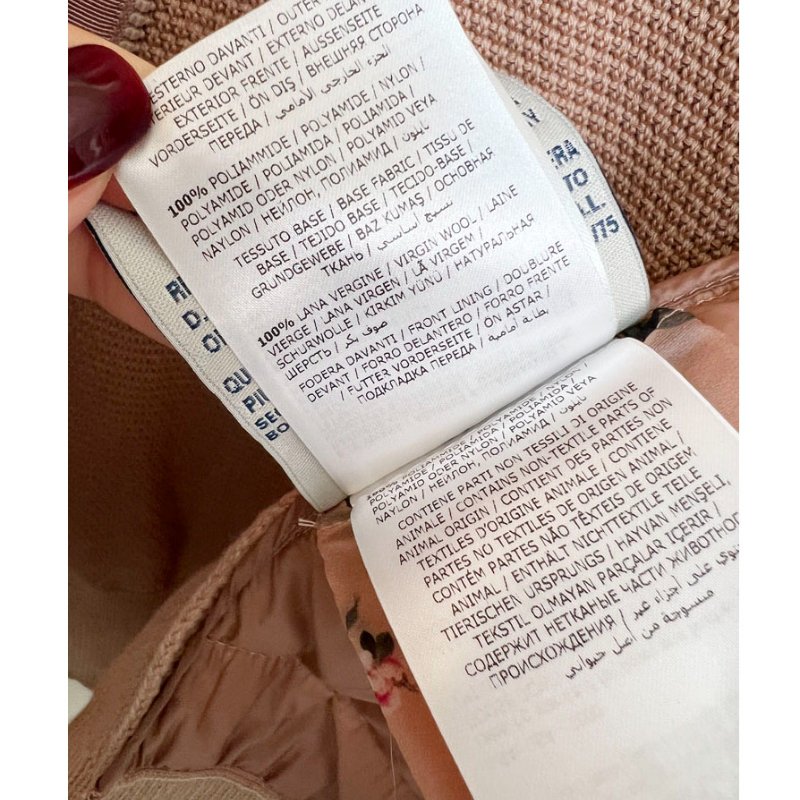 ESTERNO DAVANTI / OUTER
EXTERIOR FRENTE / EXTERNO DELANT
VORDERSEITE / AUSSENSEITE
ÖN DIŞ / ВНЕШНЯЯ СТОРОНА
ПЕРЕДА / الجزء الخارجي الأمامي
100% POLIAMMIDE / POLYAMIDE / NYLON /
POLYAMIDE / POLIAMIDA / POLIAMIDA /
POLYAMID ODER NYLON / POLYAMID VEYA
NAYLON / НЕЙЛОН, ПОЛИАМИД / نايلون
TESSUTO BASE / BASE FABRIC / TISSU DE
BASE / TEJIDO BASE / TECIDO-BASE /
GRUNDGEWEBE / BAZ KUMAŞ / ОСНОВНАЯ
ТКАНЬ / نسيج أساسي
100% LANA VERGINE / VIRGIN WOOL / LAINE
VIERGE / LANA VIRGEN / LÃ VIRGEM /
SCHURWOLLE / KIRKIM YÜNÜ / НАТУРАЛЬНАЯ
ШЕРСТЬ / صوف بكر
FODERA DAVANTI / FRONT LINING / DOUBLURE
DEVANT / FORRO DELANTERO / FORRO FRENTE
/ FUTTER VORDERSEITE / ÖN ASTAR /
ПОДКЛАДКА ПЕРЕДА / بطانة أمامية
100% POLIAMMIDE / POLYAMIDE / NYLON /
POLYAMIDE / POLIAMIDA / POLIAMIDA /
POLYAMID ODER NYLON / POLYAMID VEYA
NAYLON / НЕЙЛОН, ПОЛИАМИД / نايلون
CONTIENE PARTI NON TESSILI DI ORIGINE
ANIMALE / CONTAINS NON-TEXTILE PARTS OF
ANIMAL ORIGIN / CONTIENT DES PARTIES NON
TEXTILES D'ORIGINE ANIMALE / CONTIENE
PARTES NO TEXTILES DE ORIGEN ANIMAL /
CONTÉM PARTES NÃO TÊXTEIS DE ORIGEM
ANIMAL / ENTHÄLT NICHTTEXTILE TEILE
TIERISCHEN URSPRUNGS / HAYVAN MENŞELİ,
TEKSTIL OLMAYAN PARÇALAR İÇERİR /
СОДЕРЖИТ НЕТКАНЫЕ ЧАСТИ ЖИВОТНОГО
ПРОИСХОЖДЕНИЯ / تحتوي على أجزاء غير
منسوجة من أصل حيواني
QU